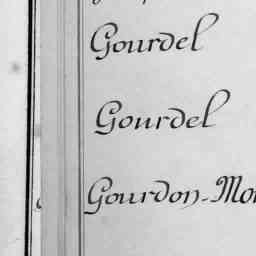 Gourdel
Gourdel
Gourdon-Mo